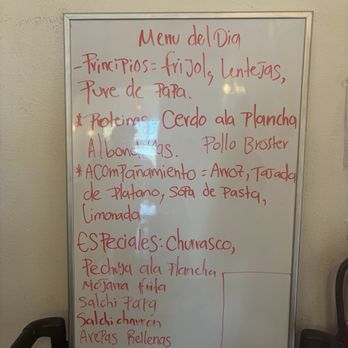 Menu del Dia
- Principios = frijol, lentejas,
Pure de PaPa.
* Proteinas Cerdo ala Plancha
Albondigas. Pollo Broster
* AComPañamiento = Arroz, Tajada
de Platano, SoPa de Pasta,
Limonada
ESPeciales: Churrasco,
Pechuga ala Plancha
Mojarra frita
Salchi PaPa
Salchicharrón
Arepas Rellenas